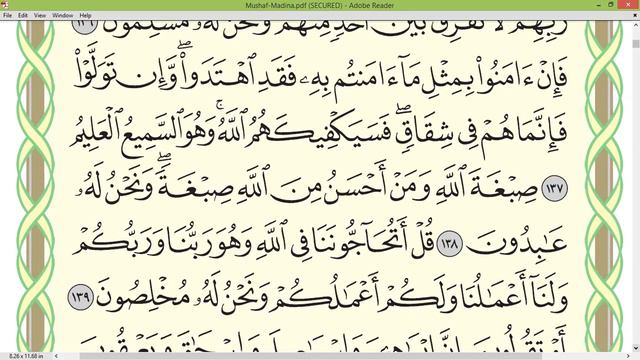 Mushaf-Madina.pdf (SECURED) - Adobe Reader
File Edit View Window Help
رَبِّهِمْ لَا نُفَرِّقُ بَيْنَ أَحَدٍ مِّنْهُمْ وَنَحْنُ لَهُۥ مُسْلِمُونَ ١٣٦
فَإِنْ ءَامَنُوا۟ بِمِثْلِ مَآ ءَامَنتُم بِهِۦ فَقَدِ ٱهْتَدَوا۟ ۖ وَّإِن تَوَلَّوْا۟
فَإِنَّمَا هُمْ فِى شِقَاقٍ ۖ فَسَيَكْفِيكَهُمُ ٱللَّهُ ۚ وَهُوَ ٱلسَّمِيعُ ٱلْعَلِيمُ
١٣٧ صِبْغَةَ ٱللَّهِ ۖ وَمَنْ أَحْسَنُ مِنَ ٱللَّهِ صِبْغَةً ۖ وَنَحْنُ لَهُۥ
عَٰبِدُونَ ١٣٨ قُلْ أَتُحَآجُّونَنَا فِى ٱللَّهِ وَهُوَ رَبُّنَا وَرَبُّكُمْ
وَلَنَآ أَعْمَٰلُنَا وَلَكُمْ أَعْمَٰلُكُمْ وَنَحْنُ لَهُۥ مُخْلِصُونَ ١٣٩
8.26 x 11.68 in